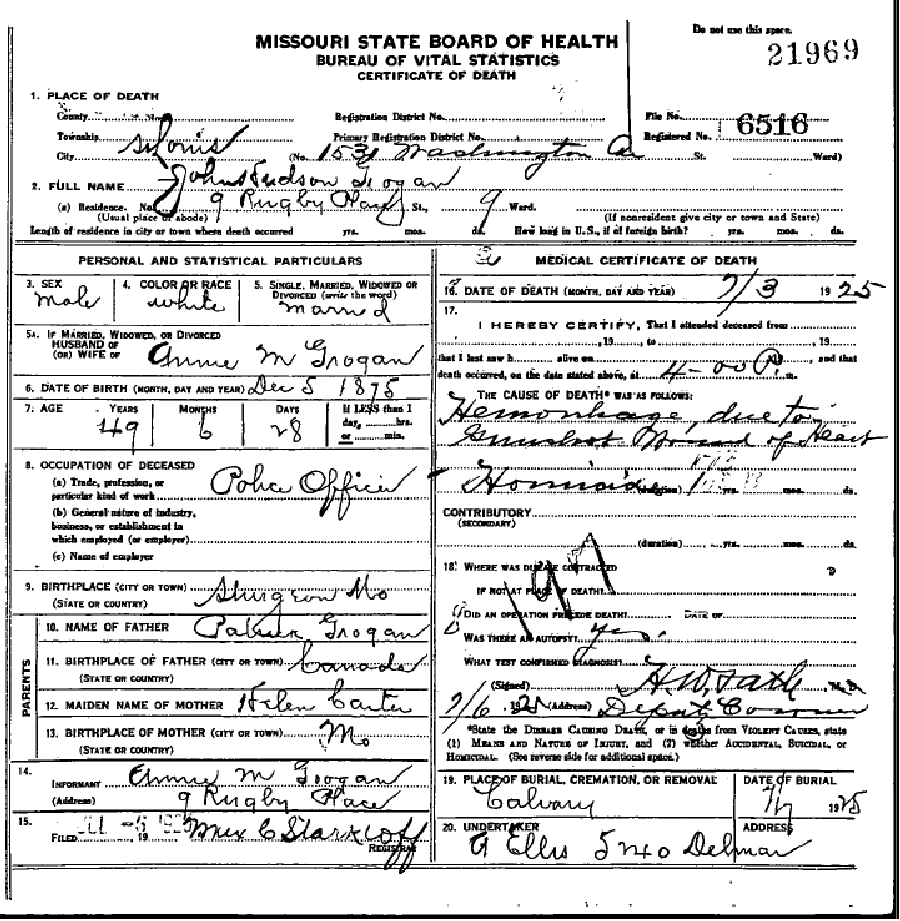 Do not use this space.
21969
MISSOURI STATE BOARD OF HEALTH
BUREAU OF VITAL STATISTICS
CERTIFICATE OF DEATH
1. PLACE OF DEATH
County Registration District No. File No.
Township Primary Registration District No. Registered No. 6516
City St Louis (No. 1531 Washington St. Ward)
2. FULL NAME John Hudson Grogan
(a) Residence. No. 9 Rugby Place St., 9 Ward.
(Usual place of abode) (If nonresident give city or town and State)
Length of residence in city or town where death occurred yrs. mos. ds. How long in U.S., if of foreign birth? yrs. mos. ds.
PERSONAL AND STATISTICAL PARTICULARS
3. SEX 4. COLOR OR RACE 5. SINGLE, MARRIED, WIDOWED OR DIVORCED (write the word)
male white married
5a. IF MARRIED, WIDOWED, OR DIVORCED
HUSBAND OF
(OR) WIFE OF Annie M Grogan
6. DATE OF BIRTH (MONTH, DAY AND YEAR) Dec 5 1875
7. AGE YEARS MONTHS DAYS If LESS than 1 day, hrs. or min.
49 6 28
8. OCCUPATION OF DECEASED
(a) Trade, profession, or
particular kind of work Police Officer
(b) General nature of industry,
business, or establishment in
which employed (or employer)
(c) Name of employer
9. BIRTHPLACE (CITY OR TOWN) Sturgeon Mo
(STATE OR COUNTRY)
PARENTS
10. NAME OF FATHER Patrick Grogan
11. BIRTHPLACE OF FATHER (CITY OR TOWN) Canada
(STATE OR COUNTRY)
12. MAIDEN NAME OF MOTHER Helen Carter
13. BIRTHPLACE OF MOTHER (CITY OR TOWN) Mo
(STATE OR COUNTRY)
14.
INFORMANT Annie M Grogan
(Address) 9 Rugby Place
15.
FILED JUL -6 19 Max C Starkloff
REGISTRAR
MEDICAL CERTIFICATE OF DEATH
16. DATE OF DEATH (MONTH, DAY AND YEAR) 7/3 1925
17.
I HEREBY CERTIFY, That I attended deceased from
, 19 , to , 19
that I last saw h alive on , and that
death occurred, on the date stated above, at 4-00 P. m.
THE CAUSE OF DEATH* WAS AS FOLLOWS:
Hemorrhage, due to
Gunshot Wound of Heart
Homicide (duration) yrs. mos. ds.
CONTRIBUTORY
(SECONDARY)
(duration) yrs. mos. ds.
18. WHERE WAS DISEASE CONTRACTED
IF NOT AT PLACE OF DEATH?
DID AN OPERATION PRECEDE DEATH? DATE OF
WAS THERE AN AUTOPSY? yes.
WHAT TEST CONFIRMED DIAGNOSIS?
(Signed) M.D.
7/6, 192 (Address) Deputy Coroner
*State the DISEASE CAUSING DEATH, or in deaths from VIOLENT CAUSES, state
(1) MEANS AND NATURE OF INJURY, and (2) whether ACCIDENTAL, SUICIDAL, or
HOMICIDAL. (See reverse side for additional space.)
19. PLACE OF BURIAL, CREMATION, OR REMOVAL DATE OF BURIAL
Calvary 7/7 1925
20. UNDERTAKER ADDRESS
Ellis Delmar